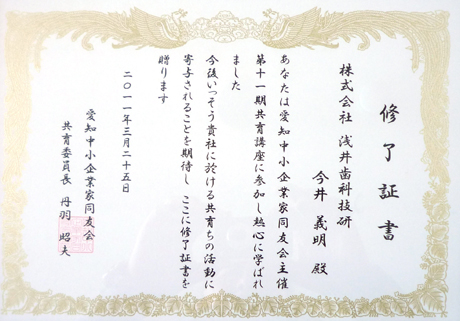 修了証書
株式会社 浅井歯科技研
今井 義明 殿
あなたは愛知中小企業家同友会主催
第十一期共育講座に参加し熱心に学ばれ
ました
今後いっそう貴社に於ける共育ちの活動に
寄与されることを期待し ここに修了証書を
贈ります
二〇一一年三月二十五日
愛知中小企業家同友会
共育委員長 丹羽 昭夫